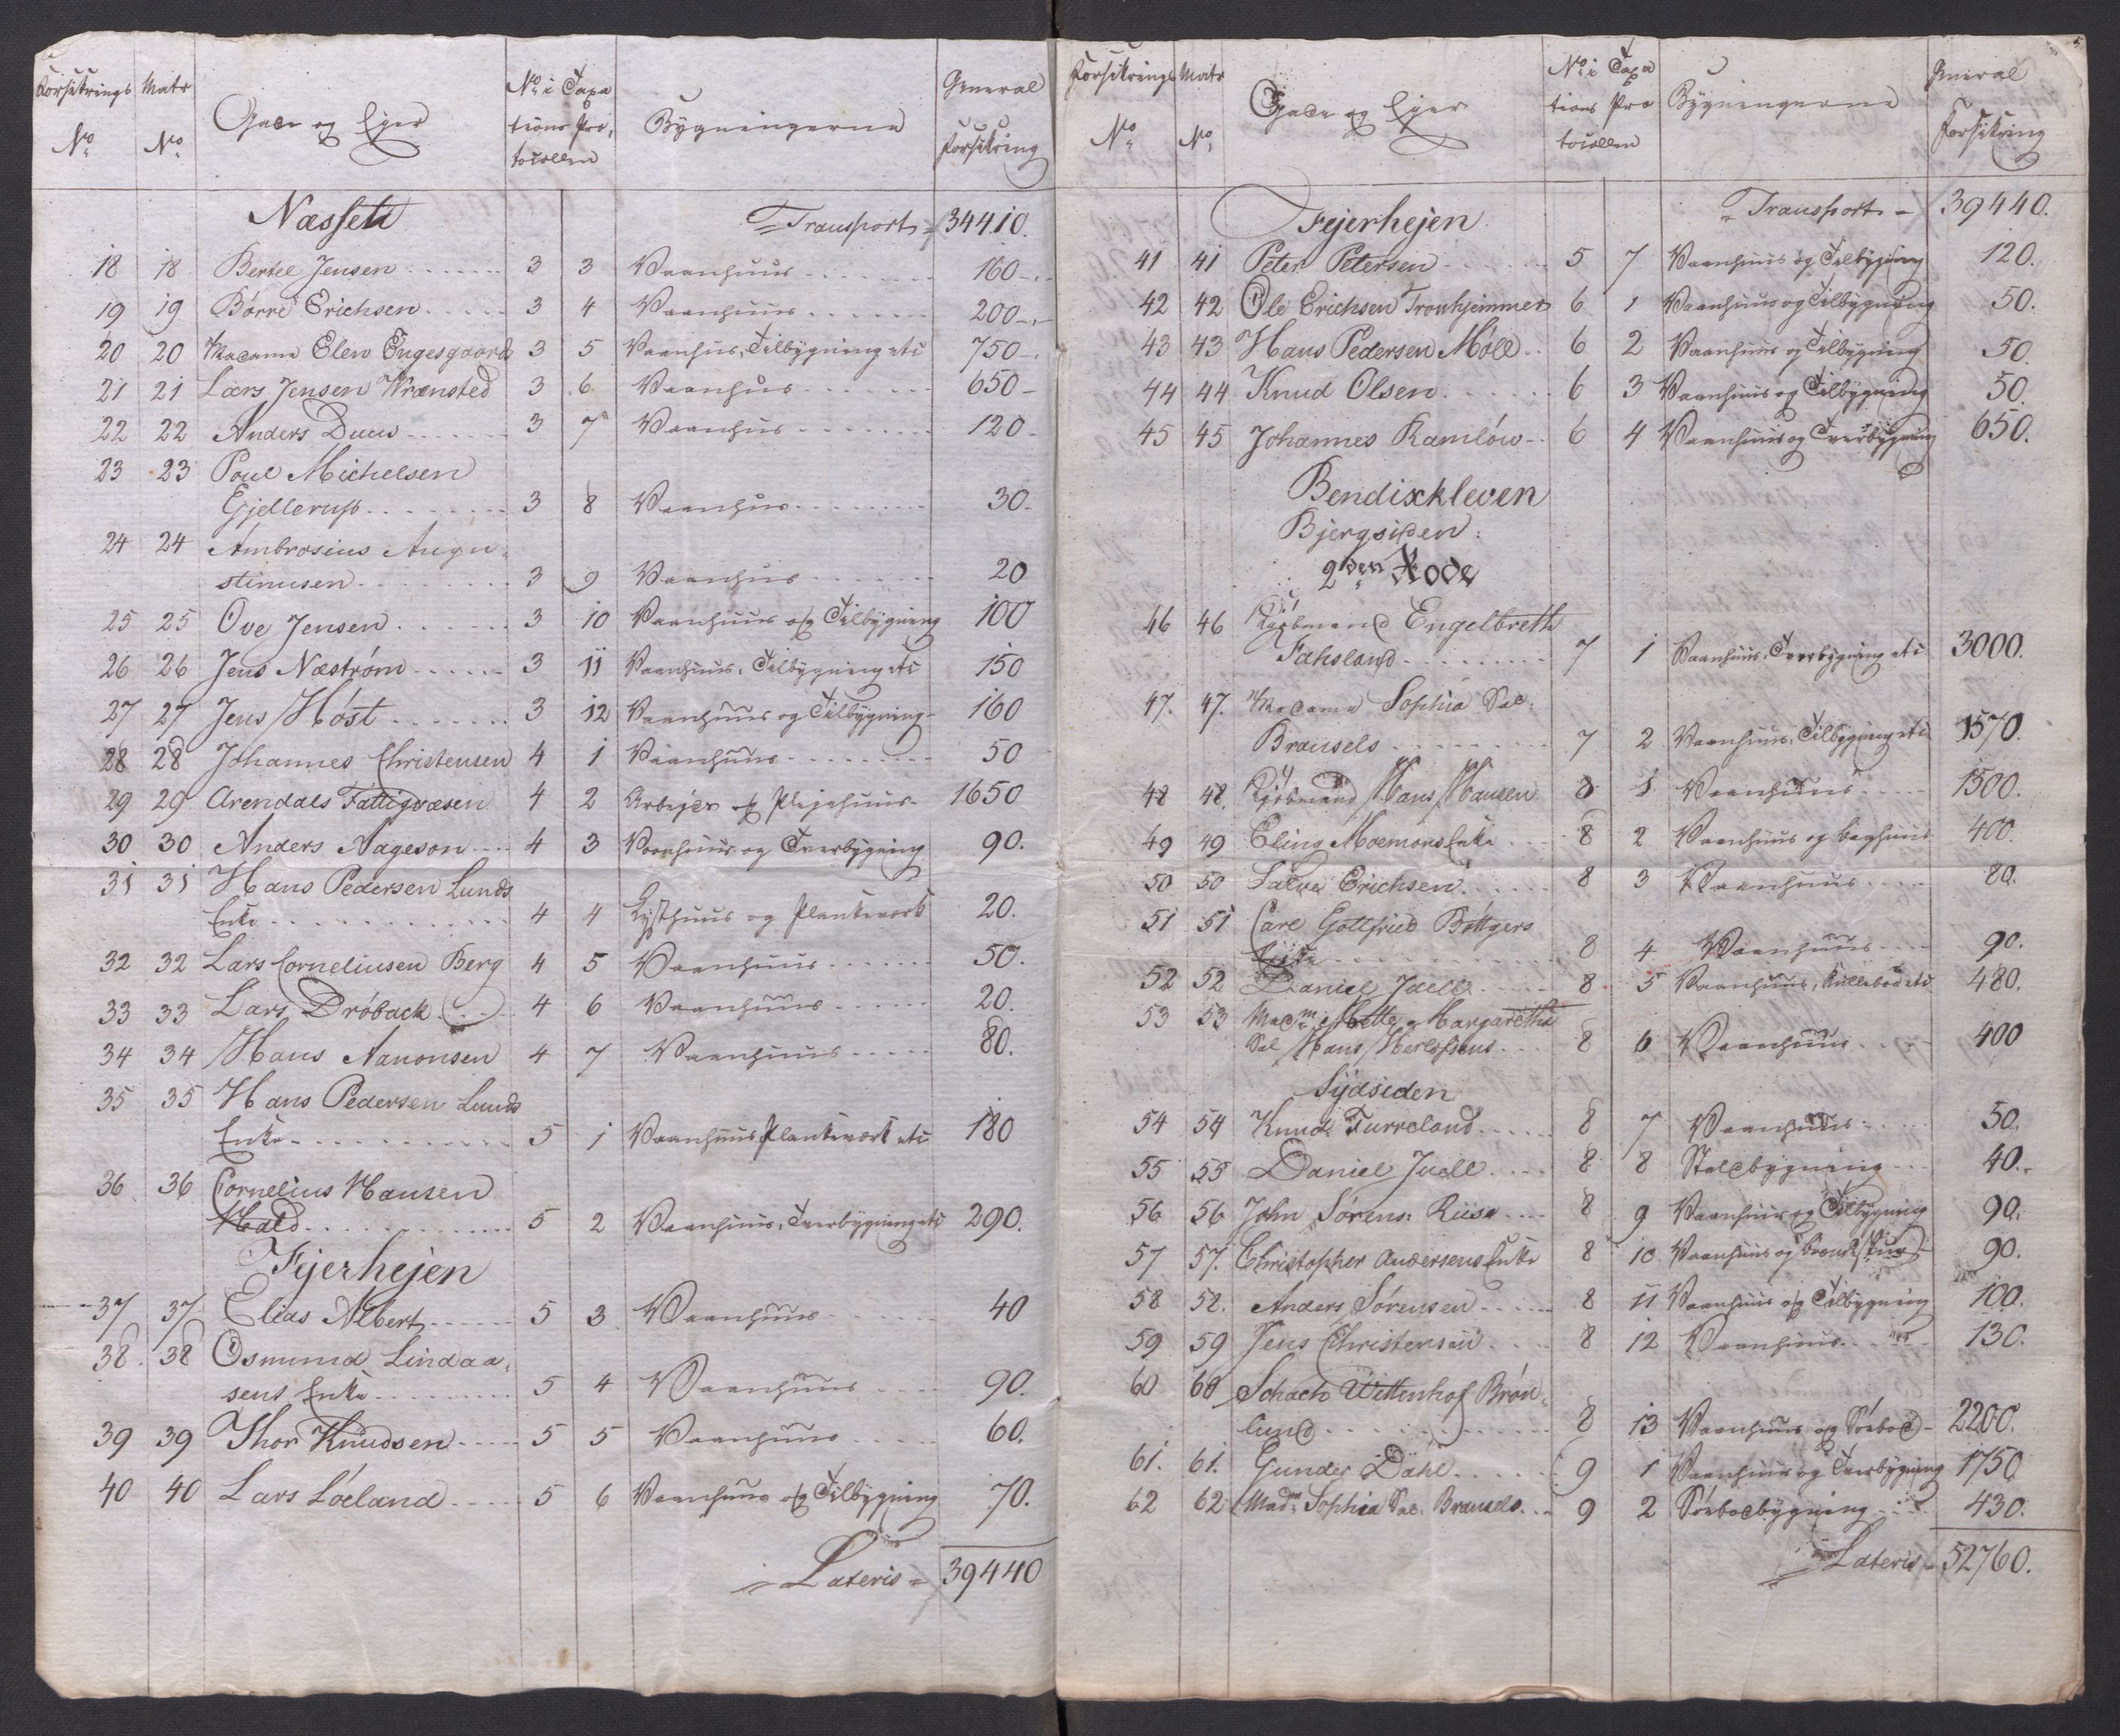 Forsikrings No Matr No Gade og Eier No i Taxationsprotocollen Bygningerne General Forsikring
Næsset Transport = 34410.
18 18 Bertel Jensen 3 3 Vaanhuus 160
19 19 Børre Erichsen 3 4 Vaanhuus 200
20 20 Madame Elen Engesgaard 3 5 Vaanhus, Tilbygning etc 750
21 21 Lars Jensen Wrensted 3 6 Vaanhus 650
22 22 Anders Duus 3 7 Vaanhus 120
23 23 Poul Michelsen
Gjellerup 3 8 Vaanhus 30
24 24 Ambrosius Augu-
stinusen 3 9 Vaanhus 20
25 25 Ove Jensen 3 10 Vaanhuus og Tilbygning 100
26 26 Jens Næstrøm 3 11 Vaanhuus, Tilbygning etc 150
27 27 Jens Høst 3 12 Vaanhuus og Tilbygning 160
28 28 Johannes Christensen 4 1 Vaanhuus 50
29 29 Arendals Fattigvæsen 4 2 Arbejds og Plejehuus 1650
30 30 Anders Aageson 4 3 Vaanhuus og Tverbygning 90.
31 31 Hans Pedersen Lunds
Enke 4 4 Lysthuus og Plankeværk 20.
32 32 Lars Corneliusen Berg 4 5 Vaanhuus 50.
33 33 Lars Drøback 4 6 Vaanhuus 20.
34 34 Hans Aanonsen 4 7 Vaanhuus 80.
35 35 Hans Pedersen Lunds
Enke 5 1 Vaanhuus, Plankeværk etc 180
36 36 Cornelius Hansen
Hald 5 2 Vaanhuus, Tverbygning etc 290.
Fejerhejen
37 37 Elias Albert 5 3 Vaanhuus 40
38 38 Osmund Lindaa-
sens Enke 5 4 Vaanhuus 90.
39 39 Thor Knudsen 5 5 Vaanhuus 60.
40 40 Lars Løeland 5 6 Vaanhuus og Tilbygning 70.
Lateris = 39440
Forsikrings No Matr No Gade og Eier No i Taxationsprotocollen Bygningerne General Forsikring
Fejerhejen Transport - 39440.
41 41 Peter Petersen 5 7 Vaanhuus og Tilbygning 120.
42 42 Ole Erichsen Tronhjemmer 6 1 Vaanhuus og Tilbygning 50.
43 43 Hans Pedersen Møll 6 2 Vaanhuus og Tilbygning 50.
44 44 Knud Olsen 6 3 Vaanhuus og Tilbygning 50.
45 45 Johannes Ramløw 6 4 Vaanhuus og Tverbygning 650.
Bendixkleven
Bjergsiden:
2den Rode
46 46 Kjøbmand Engelbreth
Fahsland 7 1 Vaanhuus, Tverbygning etc 3000.
47. 47. Madame Sophia Sal:
Brausels 7 2 Vaanhuus, Tilbygning etc 1570.
48 48. Kjøbmand Hans Hansen 8 1 Vaanhuus 1500.
49 49 Eling Moemons Enke 8 2 Vaanhuus og baghuus 400.
50 50 Salve Erichsen 8 3 Vaanhuus 80.
51 51 Carl Gottfried Bøttgers
Enke 8 4 Vaanhuus 90.
52 52 Daniel Juell 8 5 Vaanhuus, Kullebod etc 480.
53 53 Madm Mette Margaretha
Sal Hans Herlofsens 8 6 Vaanhuus 400
Sydsiden
54 54 Knud Furreland 8 7 Vaanhuus 50.
55 55 Daniel Juell 8 8 Staldbygning 40.
56 56 John Sørens: Riise 8 9 Vaanhuus og Tilbygning 90.
57 57. Christopher Andersens Enke 8 10 Vaanhuus og 90.
58 58. Anders Sørensen 8 11 Vaanhuus og Tilbygning 100.
59 59 Jens Christensen 8 12 Vaanhuus 130.
60 60 Schach Wittenhof Brøn-
lund 8 13 Vaanhuus og Søebod 2200.
61. 61. Gunder Dahl 9 1 Vaanhuus og Tverbygning 1750
62 62 Madm Sophia Sal. Brausels 9 2 Søebodbygning 430.
Lateris - 52760.